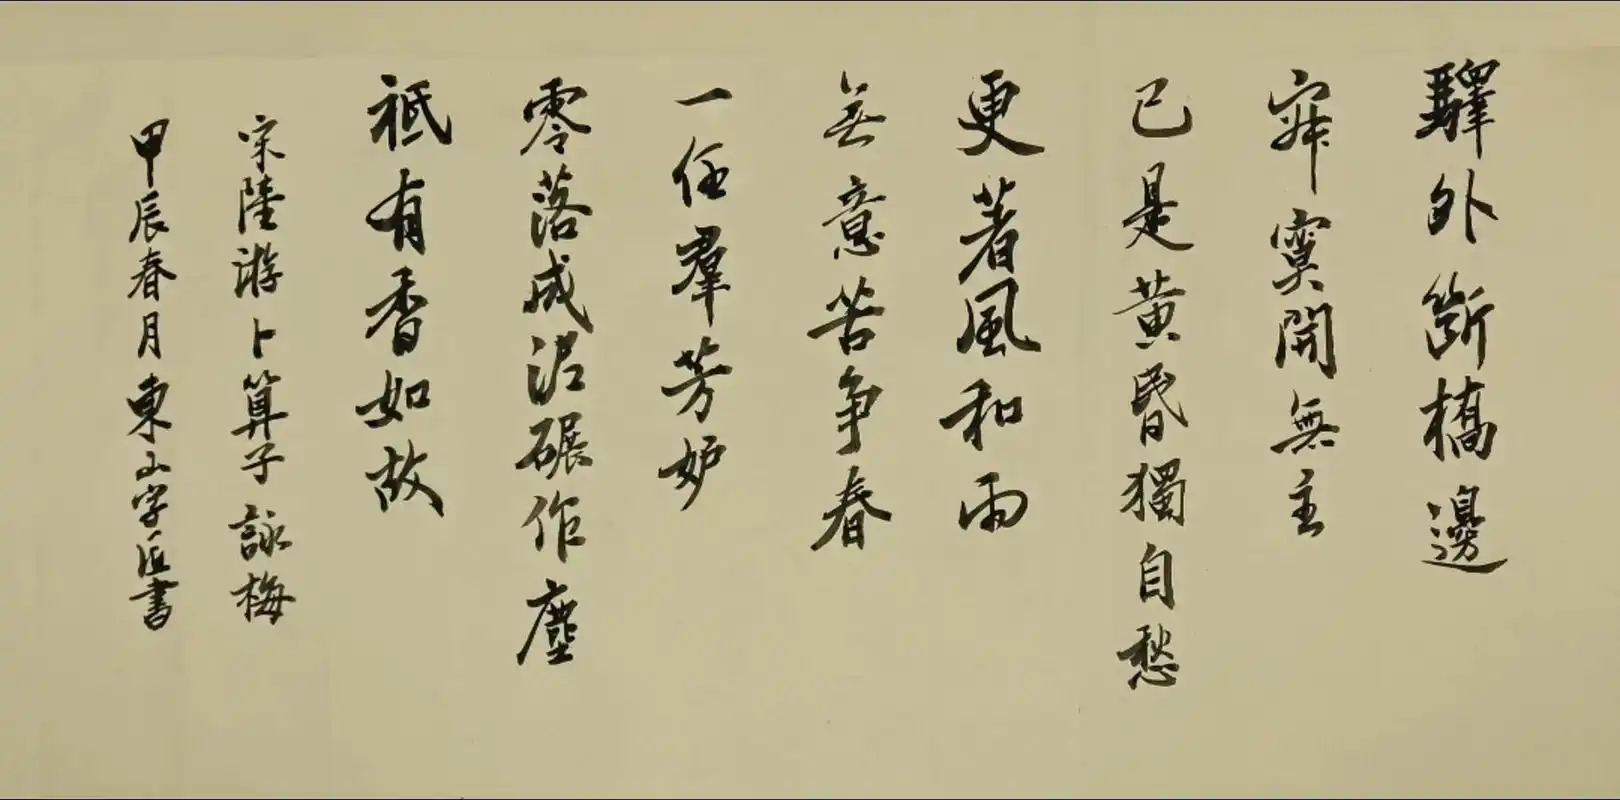 驛外斷橋邊
寂寞開無主
已是黃昏獨自愁
更著風和雨
無意苦爭春
一任羣芳妒
零落成泥碾作塵
祗有香如故
宋陸游卜算子詠梅
甲辰春月東山字匠書